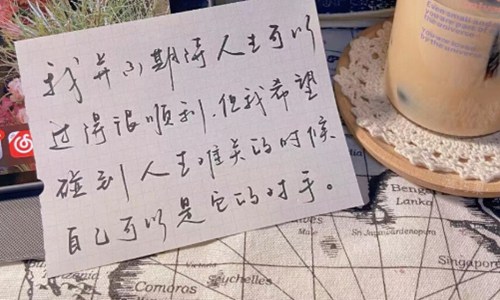 我并不期待人生可以
过得很顺利,但我希望
碰到人生难关的时候
自己可以是它的对手。
Bengal
Sri
Lanka
Male
Sri Jayawardenapura
Singapore
Seychelles
Comoros